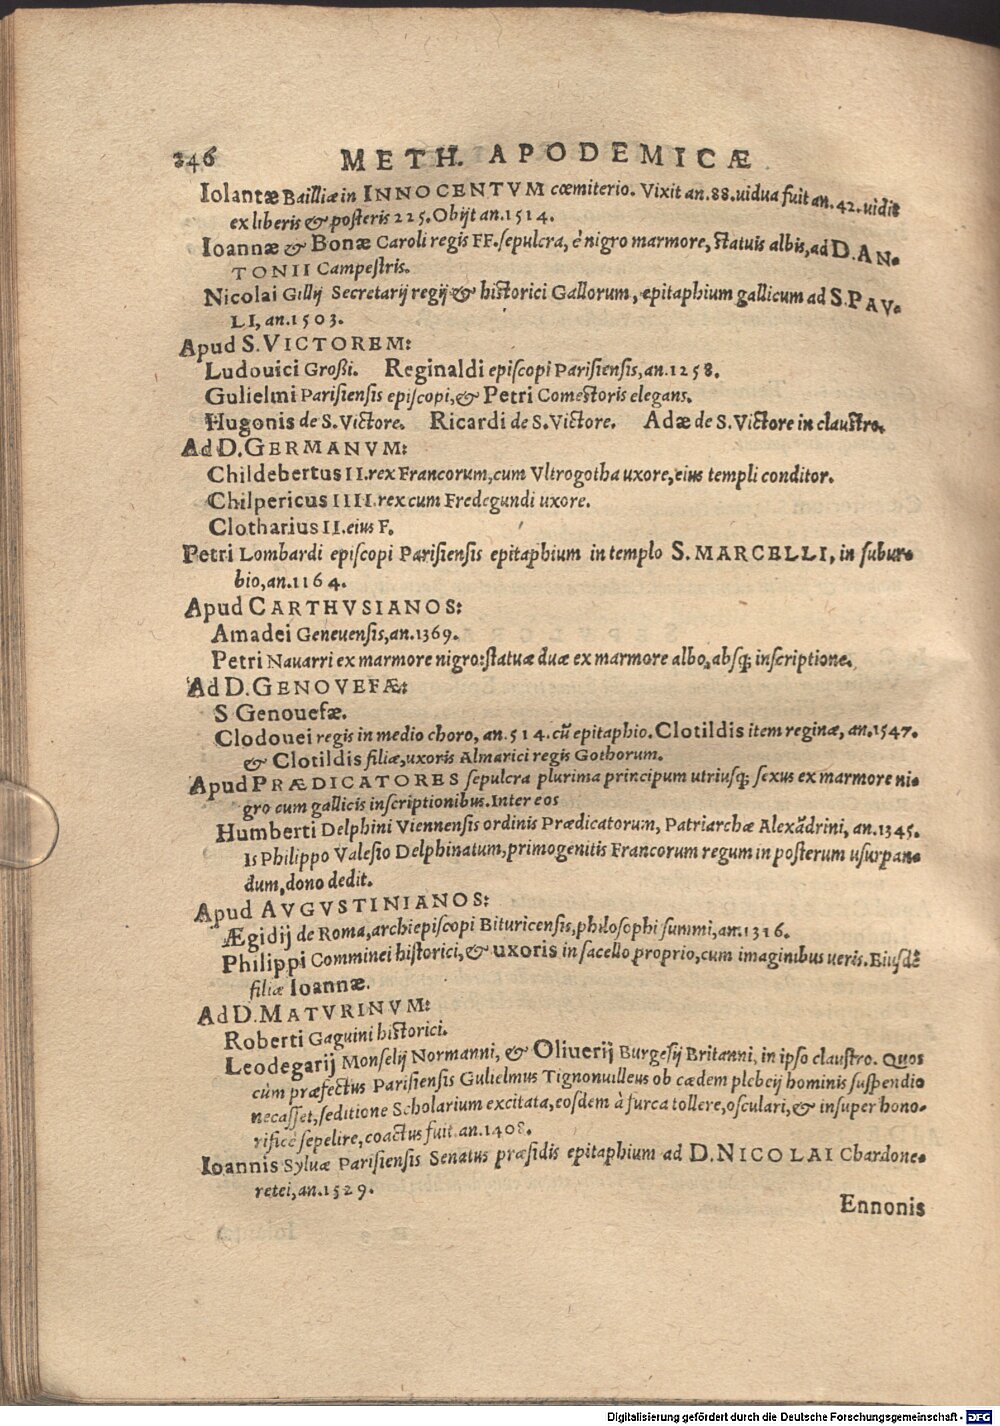 246 METH. APODEMICÆ
Iolantæ Bailliæ in INNOCENTVM cœmiterio. Vixit an.88.uidua fuit an.42.uidit
ex liberis & posteris 225.Obijt an.1514.
Ioannæ & Bonæ Caroli regis FF.sepulcra, è nigro marmore, statuis albis, ad D.AN-
TONII Campestris.
Nicolai Gillij Secretarij regij & historici Gallorum, epitaphium gallicum ad S.PAV-
LI, an.1503.
Apud S.VICTOREM:
Ludouici Großi. Reginaldi episcopi Parisiensis, an.1258.
Gulielmi Parisiensis episcopi, & Petri Comestoris elegans.
Hugonis de S.Victore. Ricardi de S.Victore. Adæ de S.Victore in claustro.
Ad D.GERMANVM:
Childebertus II.rex Francorum, cum Vltrogotha uxore, eius templi conditor.
Chilpericus IIII.rex cum Fredegundi uxore.
Clotharius II.eius F.
Petri Lombardi episcopi Parisiensis epitaphium in templo S.MARCELLI, in subur-
bio, an.1164.
Apud CARTHVSIANOS:
Amadei Geneuensis, an.1369.
Petri Nauarri ex marmore nigro: statuæ duæ ex marmore albo, absq; inscriptione.
Ad D.GENOVEFÆ:
S Genouefæ.
Clodouei regis in medio choro, an.514.cū epitaphio. Clotildis item reginæ, an.1547.
& Clotildis filiæ, uxoris Almarici regis Gothorum.
Apud PRÆDICATORES sepulcra plurima principum utriusq; sexus ex marmore ni-
gro cum gallicis inscriptionibus. Inter eos
Humberti Delphini Viennensis ordinis Prædicatorum, Patriarchæ Alexādrini, an.1345.
Is Philippo Valesio Delphinatum, primogenitis Francorum regum in posterum usurpan-
dum, dono dedit.
Apud AVGVSTINIANOS:
Ægidij de Roma, archiepiscopi Bituricensis, philosophi summi, an.1316.
Philippi Comminei historici, & uxoris in sacello proprio, cum imaginibus ueris. Eiusdē
filiæ Ioannæ.
Ad D.MATVRINVM:
Roberti Gaguini historici.
Leodegarij Monselij Normanni, & Oliuerij Burgesij Britanni, in ipso claustro. Quos
cùm præfectus Parisiensis Gulielmus Tignonuilleus ob cædem plebeij hominis suspendio
necasset, seditione Scholarium excitata, eosdem à furca tollere, osculari, & insuper hono-
rificè sepelire, coactus fuit.an.1408.
Ioannis Syluæ Parisiensis Senatus præsidis epitaphium ad D.NICOLAI Chardone-
retei, an.1529.
Ennonis
Digitalisierung gefördert durch die Deutsche Forschungsgemeinschaft - DFG